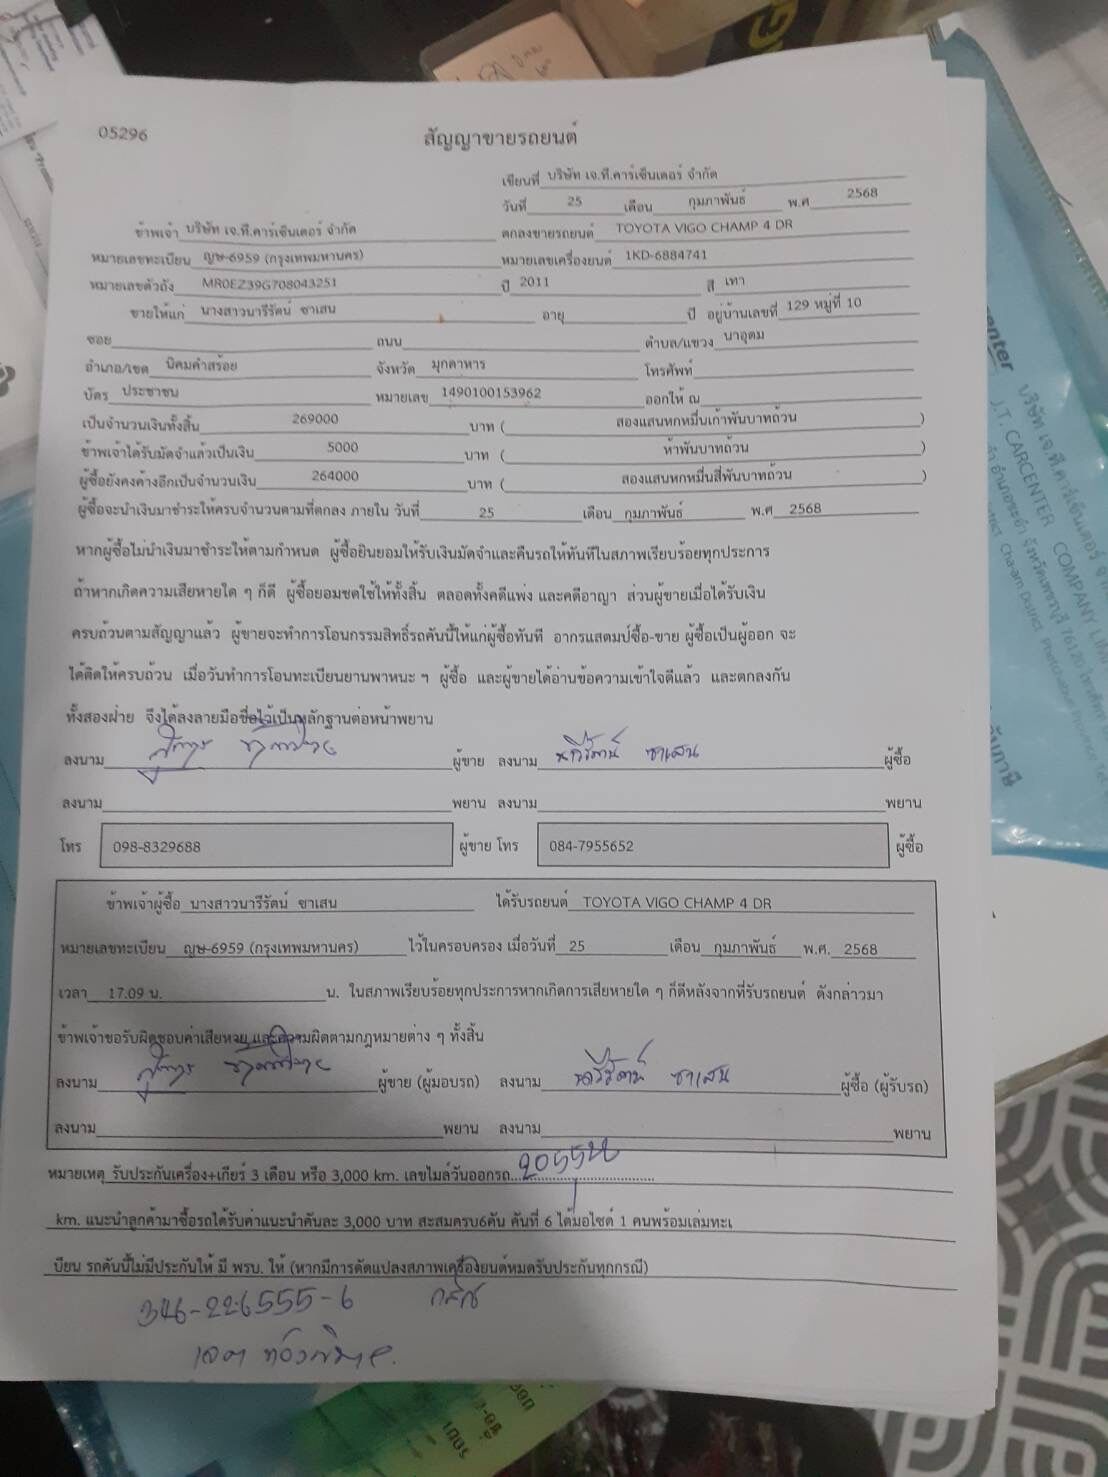 05296
สัญญาขายรถยนต์
เขียนที่ บริษัท เจ.ที.คาร์เซ็นเตอร์ จำกัด
วันที่ 25 เดือน กุมภาพันธ์ พ.ศ 2568
ข้าพเจ้า บริษัท เจ.ที.คาร์เซ็นเตอร์ จำกัด ตกลงขายรถยนต์ TOYOTA VIGO CHAMP 4 DR
หมายเลขทะเบียน ญษ-6959 (กรุงเทพมหานคร) หมายเลขเครื่องยนต์ 1KD-6884741
หมายเลขตัวถัง MR0EZ39G708043251 ปี 2011 สี เทา
ขายให้แก่ นางสาวนารีรัตน์ ซาเสน อายุ ปี อยู่บ้านเลขที่ 129 หมู่ที่ 10
ซอย ถนน ตำบล/แขวง นาอุดม
อำเภอ/เขต นิคมคำสร้อย จังหวัด มุกดาหาร โทรศัพท์
บัตร ประชาชน หมายเลข 1490100153962 ออกให้ ณ
เป็นจำนวนเงินทั้งสิ้น 269000 บาท ( สองแสนหกหมื่นเก้าพันบาทถ้วน )
ข้าพเจ้าได้รับมัดจำแล้วเป็นเงิน 5000 บาท ( ห้าพันบาทถ้วน )
ผู้ซื้อยังคงค้างอีกเป็นจำนวนเงิน 264000 บาท ( สองแสนหกหมื่นสี่พันบาทถ้วน )
ผู้ซื้อจะนำเงินมาชำระให้ครบจำนวนตามที่ตกลง ภายใน วันที่ 25 เดือน กุมภาพันธ์ พ.ศ 2568
หากผู้ซื้อไม่นำเงินมาชำระให้ตามกำหนด ผู้ซื้อยินยอมให้รับเงินมัดจำและคืนรถให้ทันทีในสภาพเรียบร้อยทุกประการ
ถ้าหากเกิดความเสียหายใด ๆ ก็ดี ผู้ซื้อยอมชดใช้ให้ทั้งสิ้น ตลอดทั้งคดีแพ่ง และคดีอาญา ส่วนผู้ขายเมื่อได้รับเงิน
ครบถ้วนตามสัญญาแล้ว ผู้ขายจะทำการโอนกรรมสิทธิ์รถคันนี้ให้แก่ผู้ซื้อทันที อากรแสตมป์ซื้อ-ขาย ผู้ซื้อเป็นผู้ออก จะ
ได้ติดให้ครบถ้วน เมื่อวันทำการโอนทะเบียนยานพาหนะ ฯ ผู้ซื้อ และผู้ขายได้อ่านข้อความเข้าใจดีแล้ว และตกลงกัน
ทั้งสองฝ่าย จึงได้ลงลายมือชื่อไว้เป็นหลักฐานต่อหน้าพยาน
ลงนาม ผู้ขาย ลงนาม นารีรัตน์ ซาเสน ผู้ซื้อ
ลงนาม พยาน ลงนาม พยาน
โทร 098-8329688 ผู้ขาย โทร 084-7955652 ผู้ซื้อ
ข้าพเจ้าผู้ซื้อ นางสาวนารีรัตน์ ซาเสน ได้รับรถยนต์ TOYOTA VIGO CHAMP 4 DR
หมายเลขทะเบียน ญษ-6959 (กรุงเทพมหานคร) ไว้ในครอบครอง เมื่อวันที่ 25 เดือน กุมภาพันธ์ พ.ศ. 2568
เวลา 17.09 น. น. ในสภาพเรียบร้อยทุกประการหากเกิดการเสียหายใด ๆ ก็ดีหลังจากที่รับรถยนต์ ดังกล่าวมา
ข้าพเจ้าขอรับผิดชอบค่าเสียหาย และความผิดตามกฎหมายต่าง ๆ ทั้งสิ้น
ลงนาม ผู้ขาย (ผู้มอบรถ) ลงนาม นารีรัตน์ ซาเสน ผู้ซื้อ (ผู้รับรถ)
ลงนาม พยาน ลงนาม พยาน
หมายเหตุ รับประกันเครื่อง+เกียร์ 3 เดือน หรือ 3,000 km. เลขไมล์วันออกรถ
km. แนะนำลูกค้ามาซื้อรถได้รับค่าแนะนำคันละ 3,000 บาท สะสมครบ6คัน คันที่ 6 ได้มอไซด์ 1 คนพร้อมเล่มทะเ
บียน รถคันนี้ไม่มีประกันให้ มี พรบ. ให้ (หากมีการดัดแปลงสภาพเครื่องยนต์หมดรับประกันทุกกรณี)
346-226555-6 กสิก
enter
บริษัท เจ.ที.คาร์เซ็นเตอร์ จำ
J.T. CARCENTER COMPANY LIMI